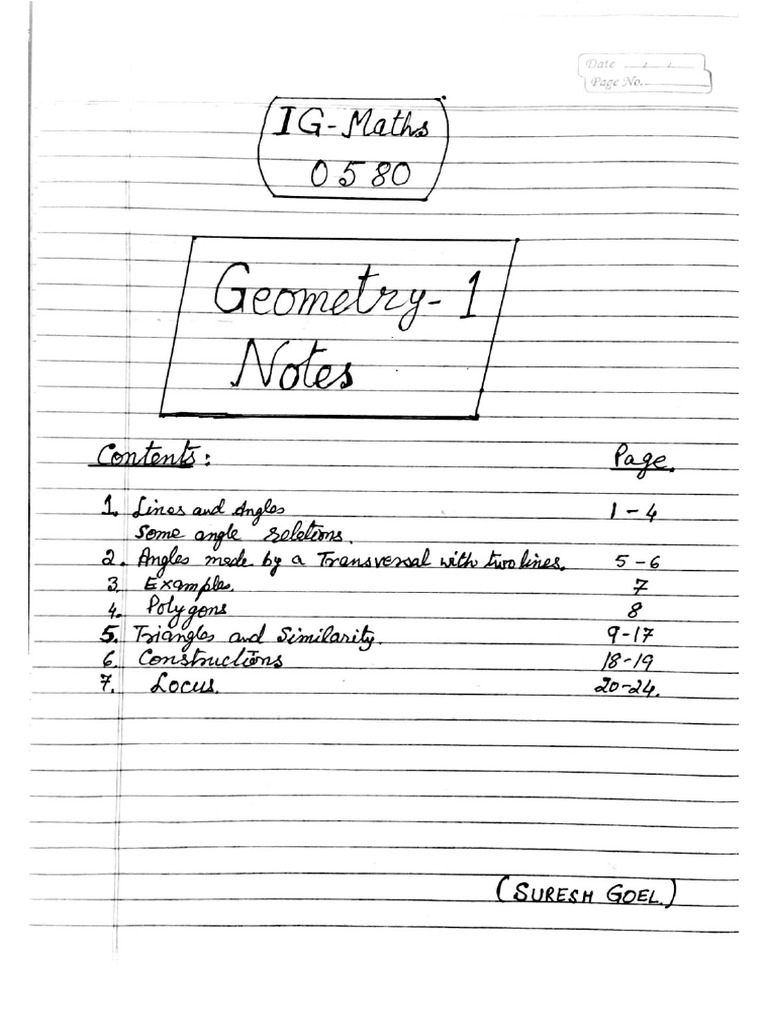 Date / /
Page No.
IG-Maths
0580
Geometry-1
Notes
Contents: Page.
1. Lines and Angles 1-4
Some angle relations.
2. Angles made by a Transversal with two lines. 5-6
3. Examples. 7
4. Polygons 8
5. Triangles and Similarity. 9-17
6. Constructions 18-19
7. Locus. 20-24.
(SURESH GOEL.)